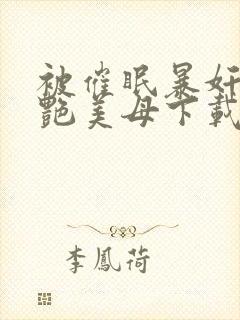 被催眠暴奸
艷美母下載
李鳳荷